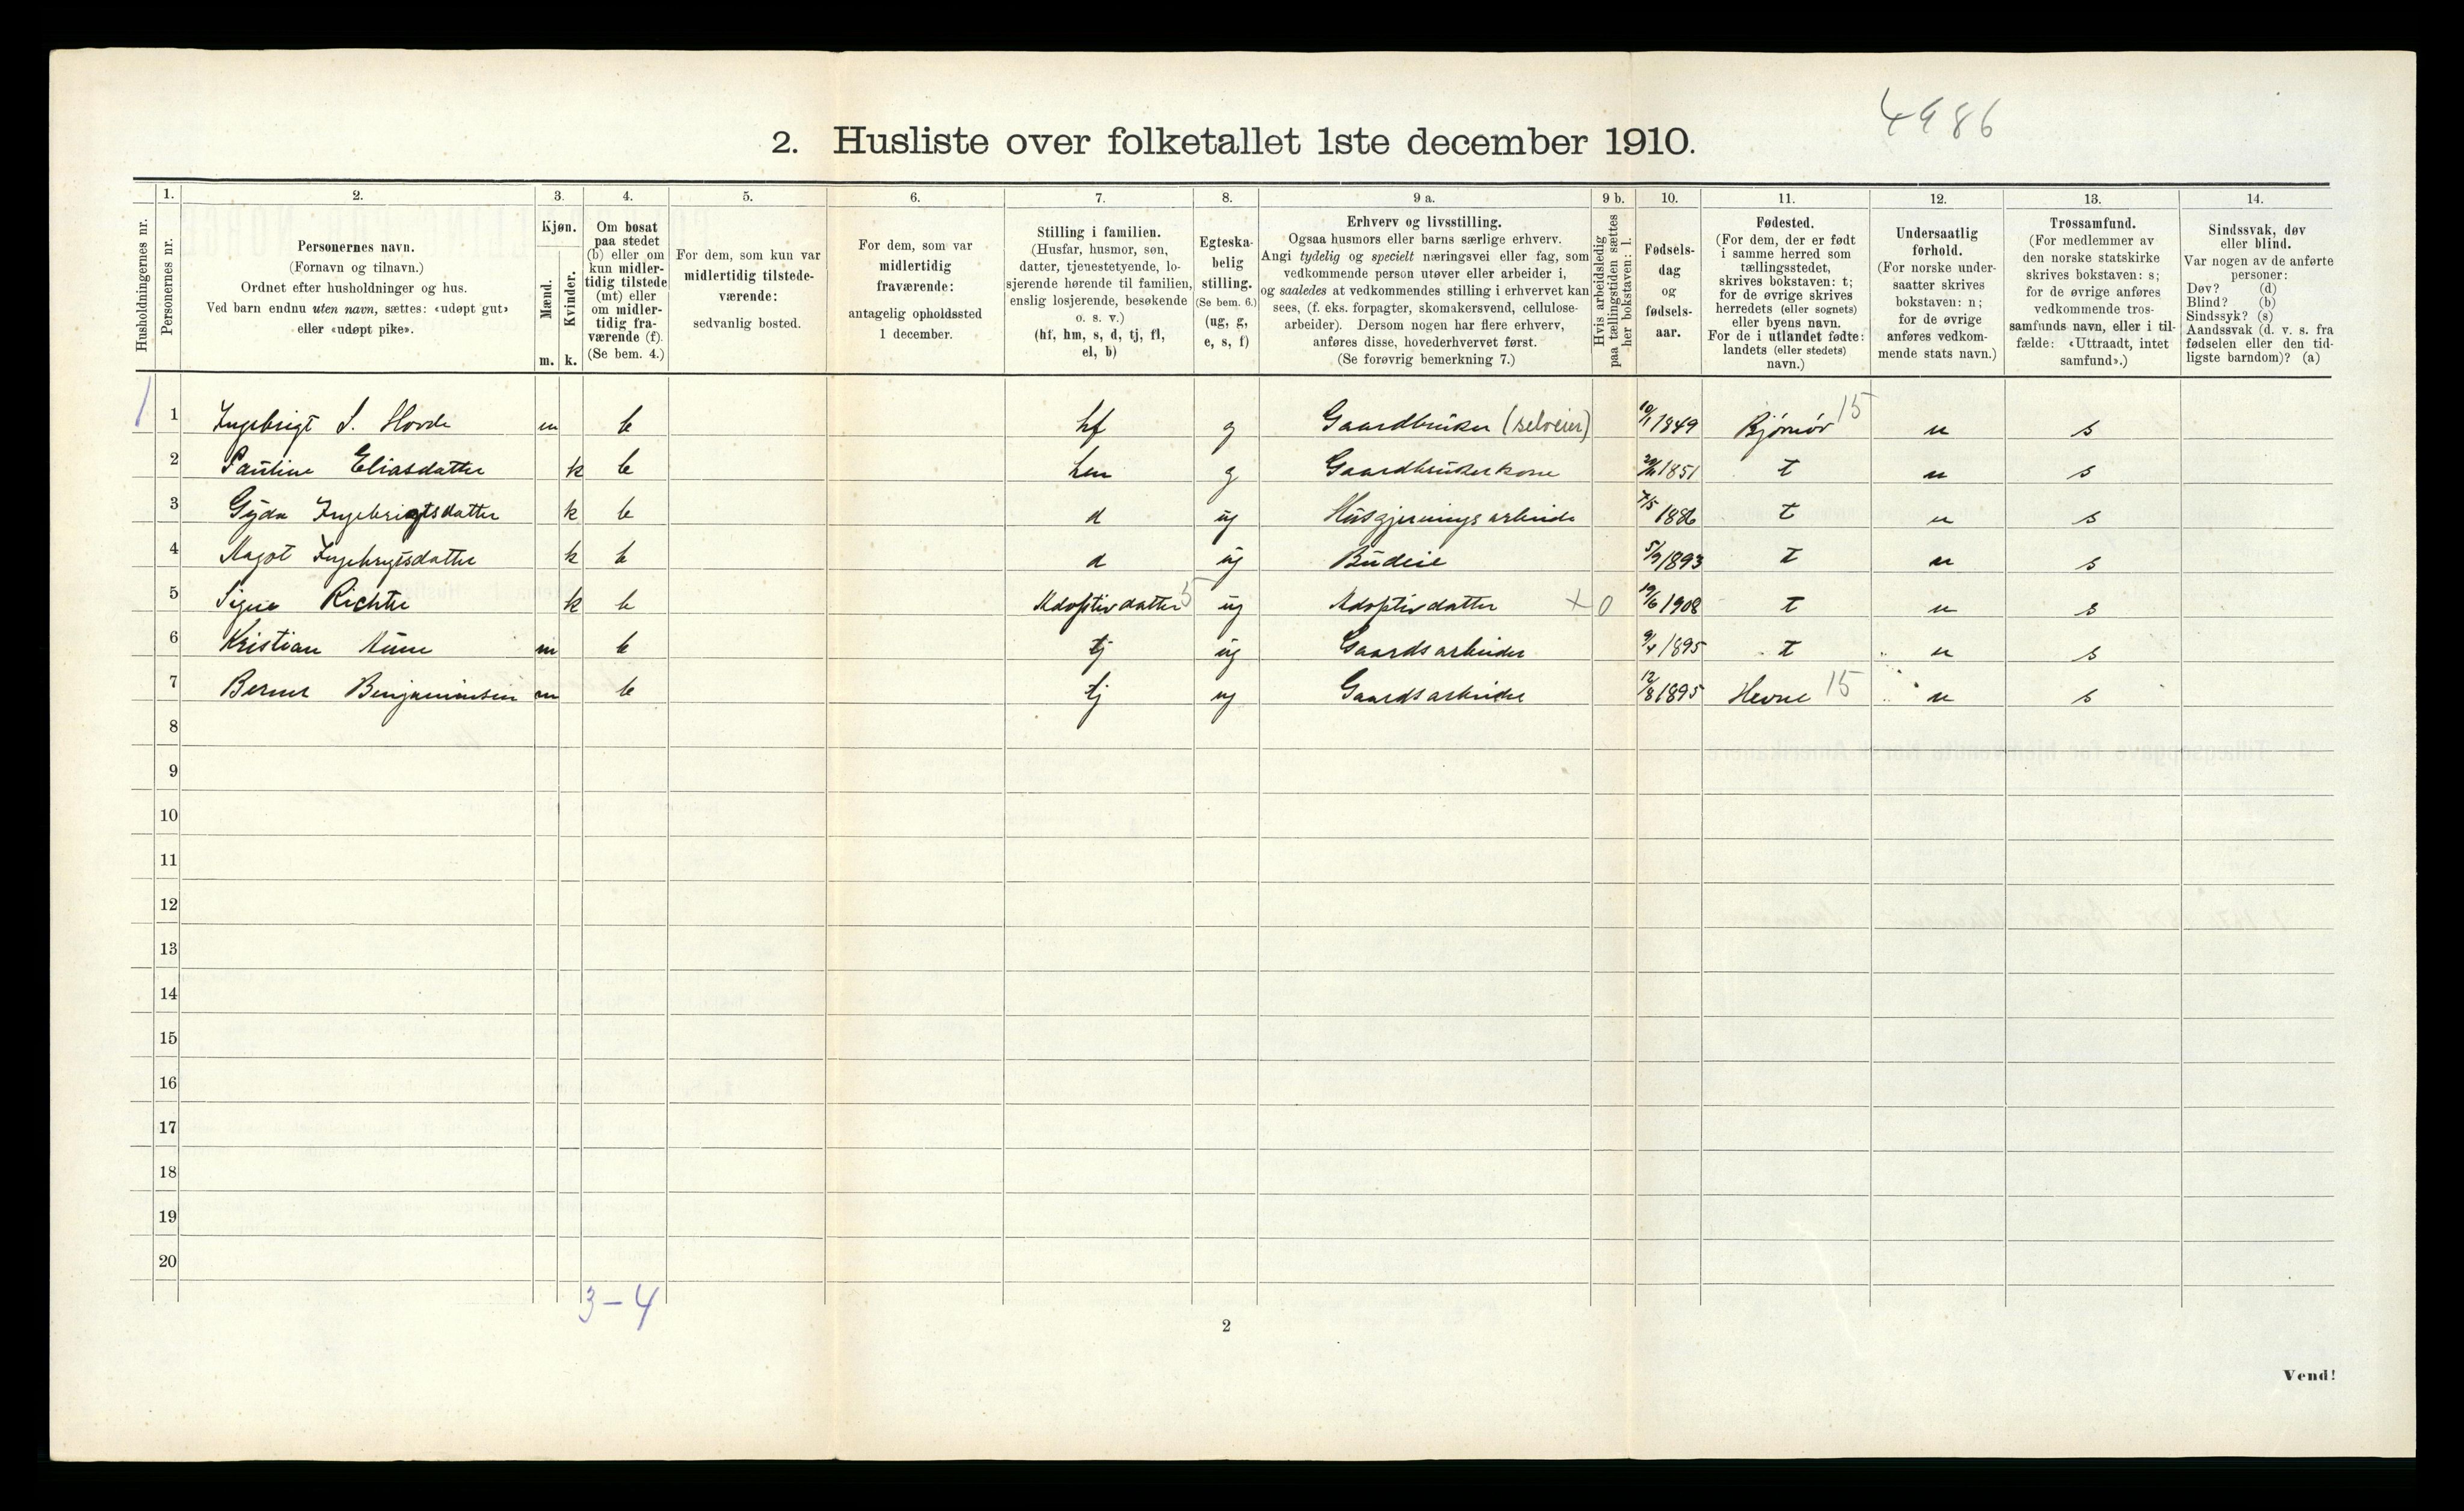 4986
2. Husliste over folketallet 1ste december 1910.
Husholdningernes nr.
1.
Personernes nr.
2.
Personernes navn.
(Fornavn og tilnavn.)
Ordnet efter husholdninger og hus.
Ved barn endnu uten navn, sættes: «udøpt gut»
eller «udøpt pike».
3.
Kjøn.
Mænd.
m.
Kvinder.
k.
4.
Om bosat
paa stedet
(b) eller om
kun midler-
tidig tilstede
(mt) eller
om midler-
tidig fra-
værende (f).
(Se bem. 4.)
5.
For dem, som kun var
midlertidig tilstede-
værende:
sedvanlig bosted.
6.
For dem, som var
midlertidig
fraværende:
antagelig opholdssted
1 december.
7.
Stilling i familien.
(Husfar, husmor, søn,
datter, tjenestetyende, lo-
sjerende hørende til familien,
enslig losjerende, besøkende
o. s. v.)
(hf, hm, s, d, tj, fl,
el, b)
8.
Egteska-
belig
stilling.
(Se bem. 6.)
(ug, g,
e, s, f)
9 a.
Erhverv og livsstilling.
Ogsaa husmors eller barns særlige erhverv.
Angi tydelig og specielt næringsvei eller fag, som
vedkommende person utøver eller arbeider i,
og saaledes at vedkommendes stilling i erhvervet kan
sees, (f. eks. forpagter, skomakersvend, cellulose-
arbeider). Dersom nogen har flere erhverv,
anføres disse, hovederhvervet først.
(Se forøvrig bemerkning 7.)
9 b.
Hvis arbeidsledig
paa tællingstiden sættes
her bokstaven: l.
10.
Fødsels-
dag
og
fødsels-
aar.
11.
Fødested.
(For dem, der er født
i samme herred som
tællingsstedet,
skrives bokstaven: t;
for de øvrige skrives
herredets (eller sognets)
eller byens navn.
For de i utlandet fødte:
landets (eller stedets)
navn.)
12.
Undersaatlig
forhold.
(For norske under-
saatter skrives
bokstaven: n;
for de øvrige
anføres vedkom-
mende stats navn.)
13.
Trossamfund.
(For medlemmer av
den norske statskirke
skrives bokstaven: s;
for de øvrige anføres
vedkommende tros-
samfunds navn, eller i til-
fælde: «Uttraadt, intet
samfund».)
14.
Sindssvak, døv
eller blind.
Var nogen av de anførte
personer:
Døv? (d)
Blind? (b)
Sindssyk? (s)
Aandssvak (d. v. s. fra
fødselen eller den tid-
ligste barndom)? (a)
1 1 Ingebrigt S. Hovde m b hf g Gaardbruker (selveier) 10/1 1849 Bjørnør 15 n s
2 Pauline Eliasdatter k b hm g Gaardbrukerkone 1851 t n s
3 Gyda Ingebrigtsdatter k b d ug Husgjerningsarbeide 7/5 1886 t n s
4 Magot Ingebrigtsdatter k b d ug Budeie 5/9 1893 t n s
5 Signe Richter k b Adoptivdatter 5 ug Adoptivdatter + 0 19/6 1908 t n s
6 Kristian Aune m b tj ug Gaardsarbeider 9/4 1895 t n s
7 Berner Benjaminsen m b tj ug Gaardsarbeider 12/8 1895 Hevne 15 n s
8
9
10
11
12
13
14
15
16
17
18
19
20
3-4
2
Vend!